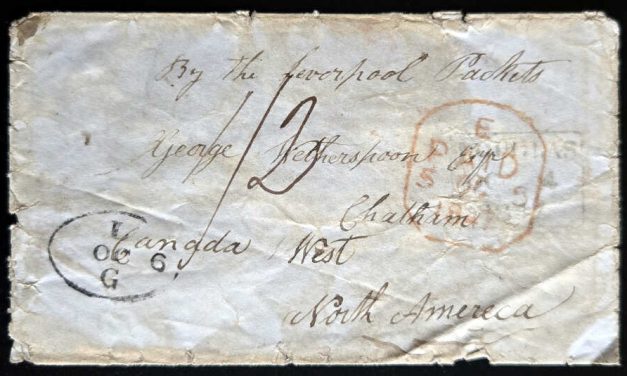 By the Leverpool Packets
George Wetherspoon Esqr
1/2
Chatham
Cannada West
North Amereca
L
OC 6
G
E
PAID